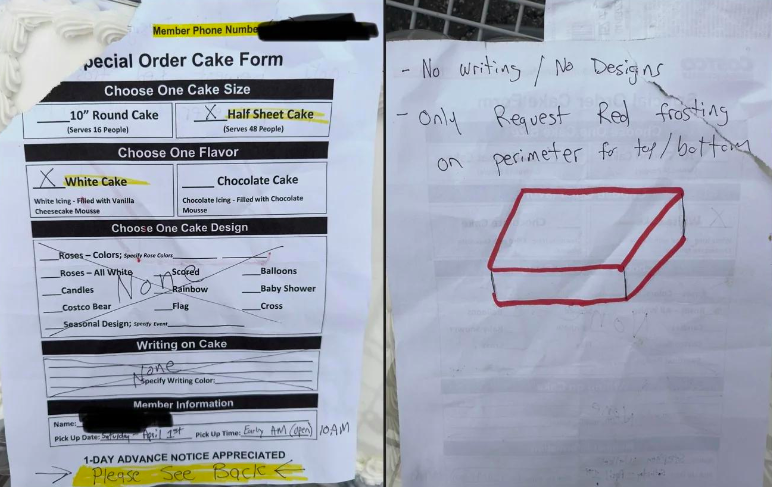 Member Phone Numbe
pecial Order Cake Form
Choose One Cake Size
____10" Round Cake
(Serves 16 People)
X Half Sheet Cake
(Serves 48 People)
Choose One Flavor
X White Cake
White Icing - Filled with Vanilla
Cheesecake Mousse
____ Chocolate Cake
Chocolate Icing - Filled with Chocolate
Mousse
Choose One Cake Design
____Roses – Colors; Specify Rose Colors____ ____
____Roses – All White
____Candles
____Costco Bear
____Scored
____Rainbow
____Flag
____Balloons
____Baby Shower
____Cross
____Seasonal Design; Specify Event____
None
Writing on Cake
None
Specify Writing Color:____
Member Information
Name:
Pick Up Date: Saturday - April 1st Pick Up Time: Early AM (open) 10AM
1-DAY ADVANCE NOTICE APPRECIATED
→ Please See Back ←
- No writing / No Designs
- Only Request Red frosting
on perimeter for top/bottom